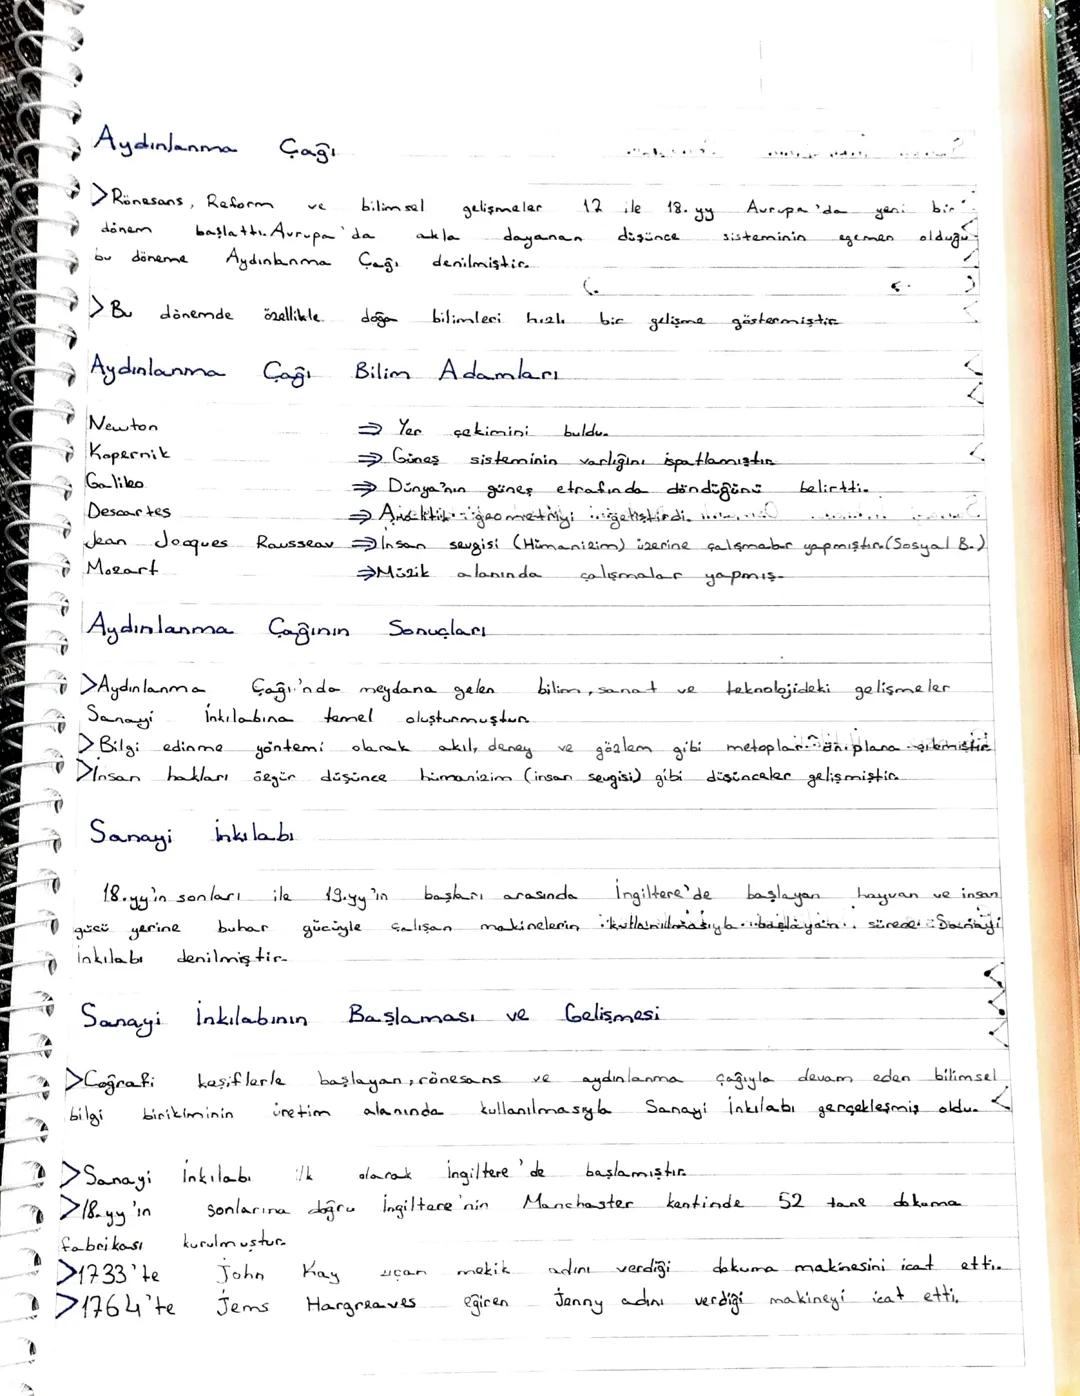 Aydınlanma Çağı
>Rönesans, Reform ve bilimsel gelişmeler 17 ile 18.yy Avrupa'da yeni bir
dönem başlattı. Avrupa'da akla dayanan düşünce sisteminin egemen olduğu
bu döneme Aydınlanma Çağı denilmiştir.
>Bu dönemde özellikle doğa bilimleri hızlı bir gelişme göstermiştir
Aydınlanma Çağı Bilim Adamları
Newton ⇒ Yer çekimini buldu.
Kopernik ⇒ Güneş sisteminin varlığını ispatlamıştır
Galileo ⇒ Dünya'nın güneş etrafında döndüğünü belirtti.
Descartes ⇒ Analitik geometriyi geliştirdi.
Jean Jocques Rousseau ⇒ İnsan sevgisi (Hümanizim) üzerine çalışmalar yapmıştır.(Sosyal B.)
Mozart ⇒ Müzik alanında çalışmalar yapmış.
Aydınlanma Çağının Sonuçları
>Aydınlanma Çağı'nda meydana gelen bilim, sanat ve teknolojideki gelişmeler
Sanayi İnkılabına temel oluşturmuştur
>Bilgi edinme yöntemi olarak akıl, deney ve gözlem gibi metoplar ön plana çıkmıştır
>İnsan hakları özgür düşünce hümanizim (insan sevgisi) gibi düşünceler gelişmiştir
Sanayi İnkılabı
18.yy'ın sonları ile 19.yy'ın başları arasında İngiltere'de başlayan hayvan ve insan
gücü yerine buhar gücüyle çalışan makinelerin kullanılmasıyla başlayan sürece Sanayi
İnkılabı denilmiştir.
Sanayi İnkılabının Başlaması ve Gelişmesi
>Coğrafi keşiflerle başlayan, rönesans ve aydınlanma çağıyla devam eden bilimsel
bilgi birikiminin üretim alanında kullanılmasıyla Sanayi İnkılabı gerçekleşmiş oldu.
>Sanayi İnkılabı ilk olarak İngiltere'de başlamıştır
>18.yy'ın sonlarına doğru İngiltere'nin Manchaster kentinde 52 tane dokuma
fabrikası kurulmuştur.
>1733'te John Kay uçan mekik adını verdiği dokuma makinesini icat etti.
>1764'te Jems Hargreaves eğiren Jenny adını verdiği makineyi icat etti.